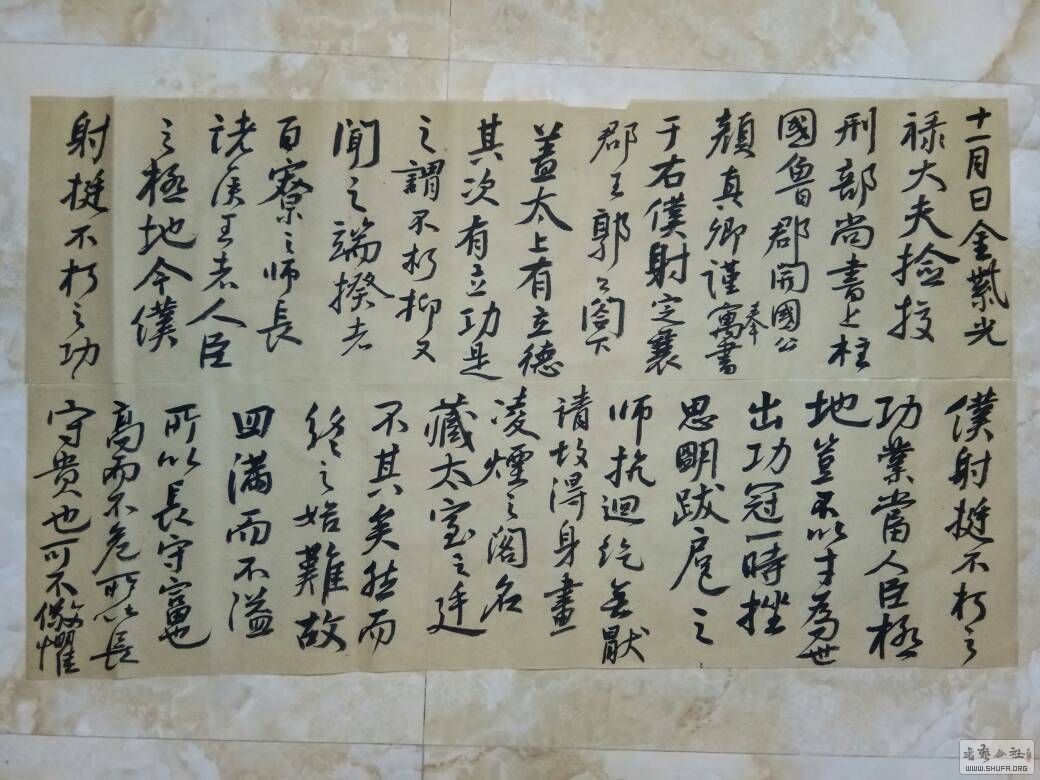 十一月日金紫光
禄大夫捡挍
刑部尚書上柱
國魯郡開國公
顔真卿謹寓書奉
于右僕射定襄
郡王郭公閤下
蓋太上有立德
其次有立功是
之謂不朽抑又
聞之端揆者
百寮之師長
諸侯王者人臣
之極地今僕
射挺不朽之功
僕射挺不朽之
功業當人臣極
地豈不以才為世
出功冠一時挫
思明跋扈之
師抗迴紇無厭
請故得身畫
凌煙之閣名
藏太室之廷
不其矣然而
終之始難故
曰滿而不溢
所以長守富也
高而不危所以長
守貴也可不儆懼
书艺公社
WWW.SHUFA.ORG